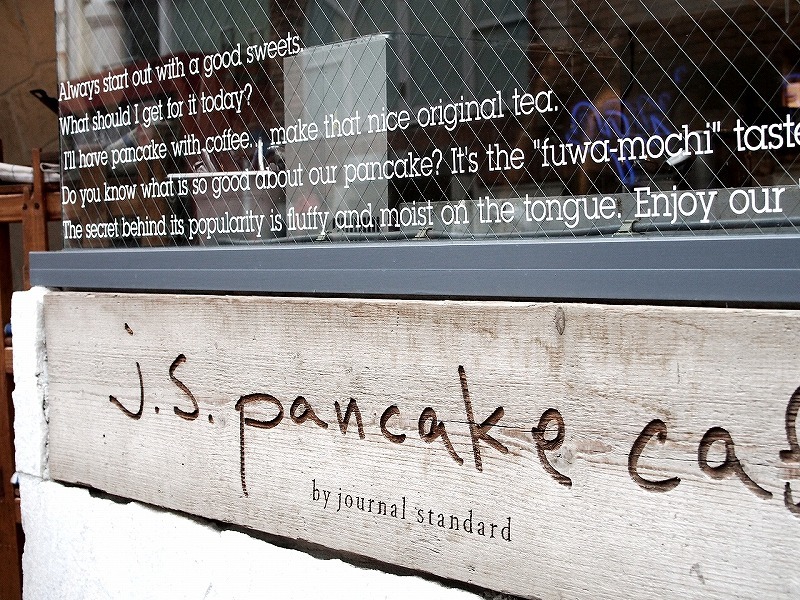 Always start out with a good sweets.
What should I get for it today?
I'll have pancake with coffee... make that nice original tea.
Do you know what is so good about our pancake? It's the "fuwa-mochi" taste
The secret behind its popularity is fluffy and moist on the tongue. Enjoy our
j.s. pancake caf
by journal standard